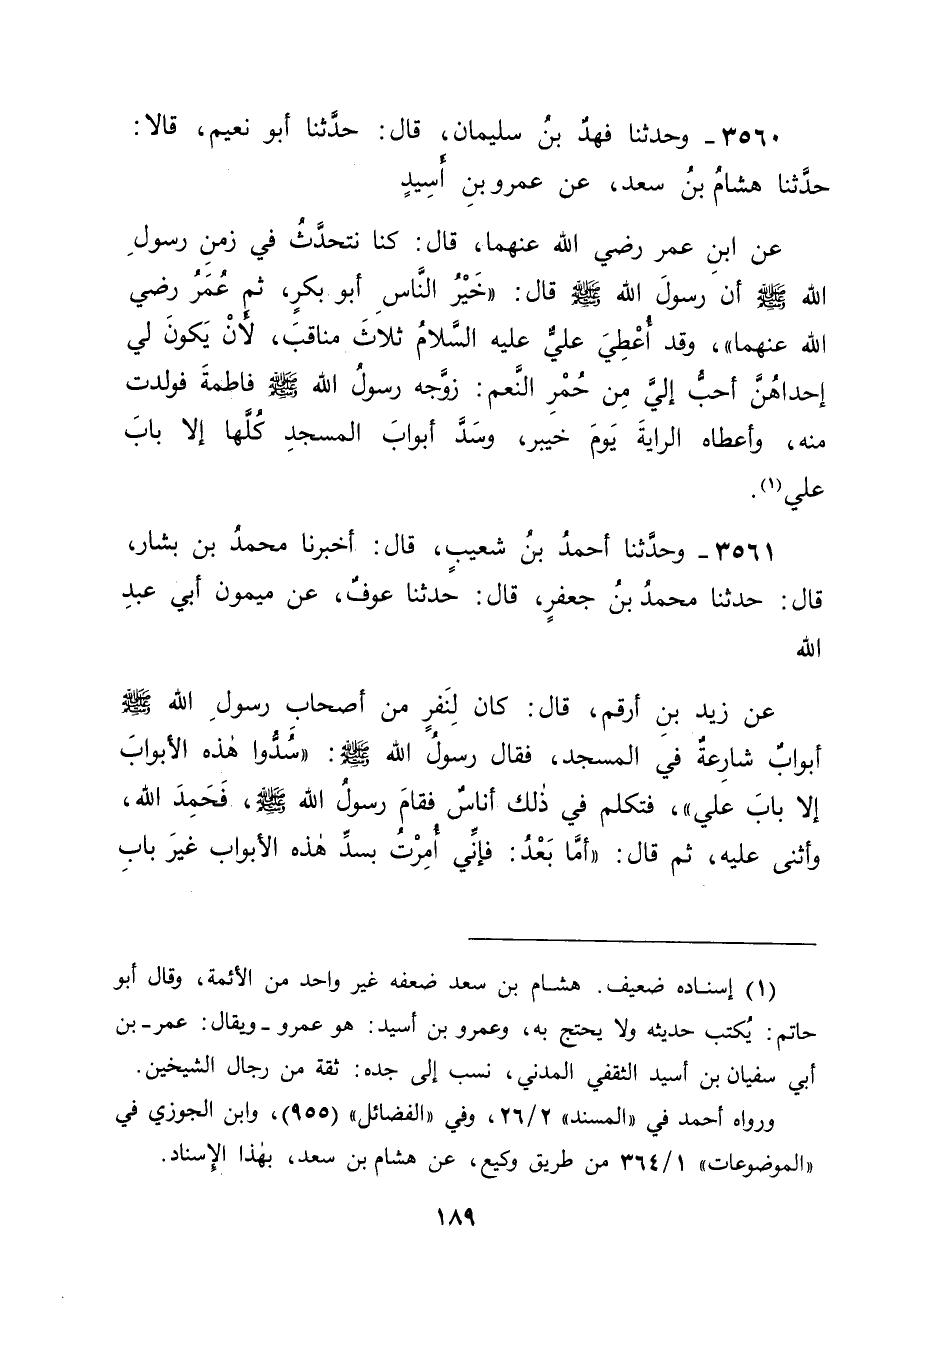 ٣٥٦٠ ـ وحدثنا فهدٌ بنُ سليمان، قال: حدَّثنا أبو نعيم، قالا:
حدَّثنا هشامُ بنُ سعد، عن عمرو بنِ أَسِيدٍ
عن ابنِ عمر رضي الله عنهما، قال: كنا نتحدَّثُ في زمنِ رسولِ
الله ﷺ أن رسولَ الله ﷺ قال: «خَيْرُ النَّاسِ أبو بكرٍ، ثم عُمَرُ رضي
الله عنهما»، وقد أُعْطِيَ عليٌّ عليه السَّلامُ ثلاثَ مناقبَ، لَأنْ يَكونَ لي
إحداهُنَّ أحبُّ إليَّ مِن حُمْرِ النَّعم: زوَّجه رسولُ الله ﷺ فاطمةَ فولدت
منه، وأعطاه الرايةَ يَومَ خيبر، وسَدَّ أبوابَ المسجدِ كُلَّها إلا بابَ
علي(١).
٣٥٦١ ـ وحدَّثنا أحمدُ بنُ شعيبٍ، قال: أخبرنا محمدُ بن بشار،
قال: حدثنا محمدُ بنُ جعفرٍ، قال: حدثنا عوفٌ، عن ميمون أبي عبدِ
الله
عن زيد بنِ أرقم، قال: كان لِنَفرٍ من أصحابِ رسولِ الله ﷺ
أبوابٌ شارِعةٌ في المسجد، فقال رسولُ الله ﷺ: «سُدُّوا هٰذه الأبوابَ
إلا بابَ علي»، فتكلم في ذٰلك أناسٌ فقامَ رسولُ الله ﷺ، فَحَمِدَ الله،
وأثنى عليه، ثم قال: «أمَّا بَعْدُ: فإنِّي أُمِرْتُ بسدِّ هٰذه الأبواب غيرَ بابِ
(١) إسناده ضعيف. هشام بن سعد ضعفه غير واحد من الأئمة، وقال أبو
حاتم: يُكتب حديثه ولا يحتج به، وعمرو بن أسيد: هو عمرو ـ ويقال: عمر ـ بن
أبي سفيان بن أسيد الثقفي المدني، نسب إلى جده: ثقة من رجال الشيخين.
ورواه أحمد في «المسند» ٢٦/٢، وفي «الفضائل» (٩٥٥)، وابن الجوزي في
«الموضوعات» ٣٦٤/١ من طريق وكيع، عن هشام بن سعد، بهٰذا الإسناد.
١٨٩